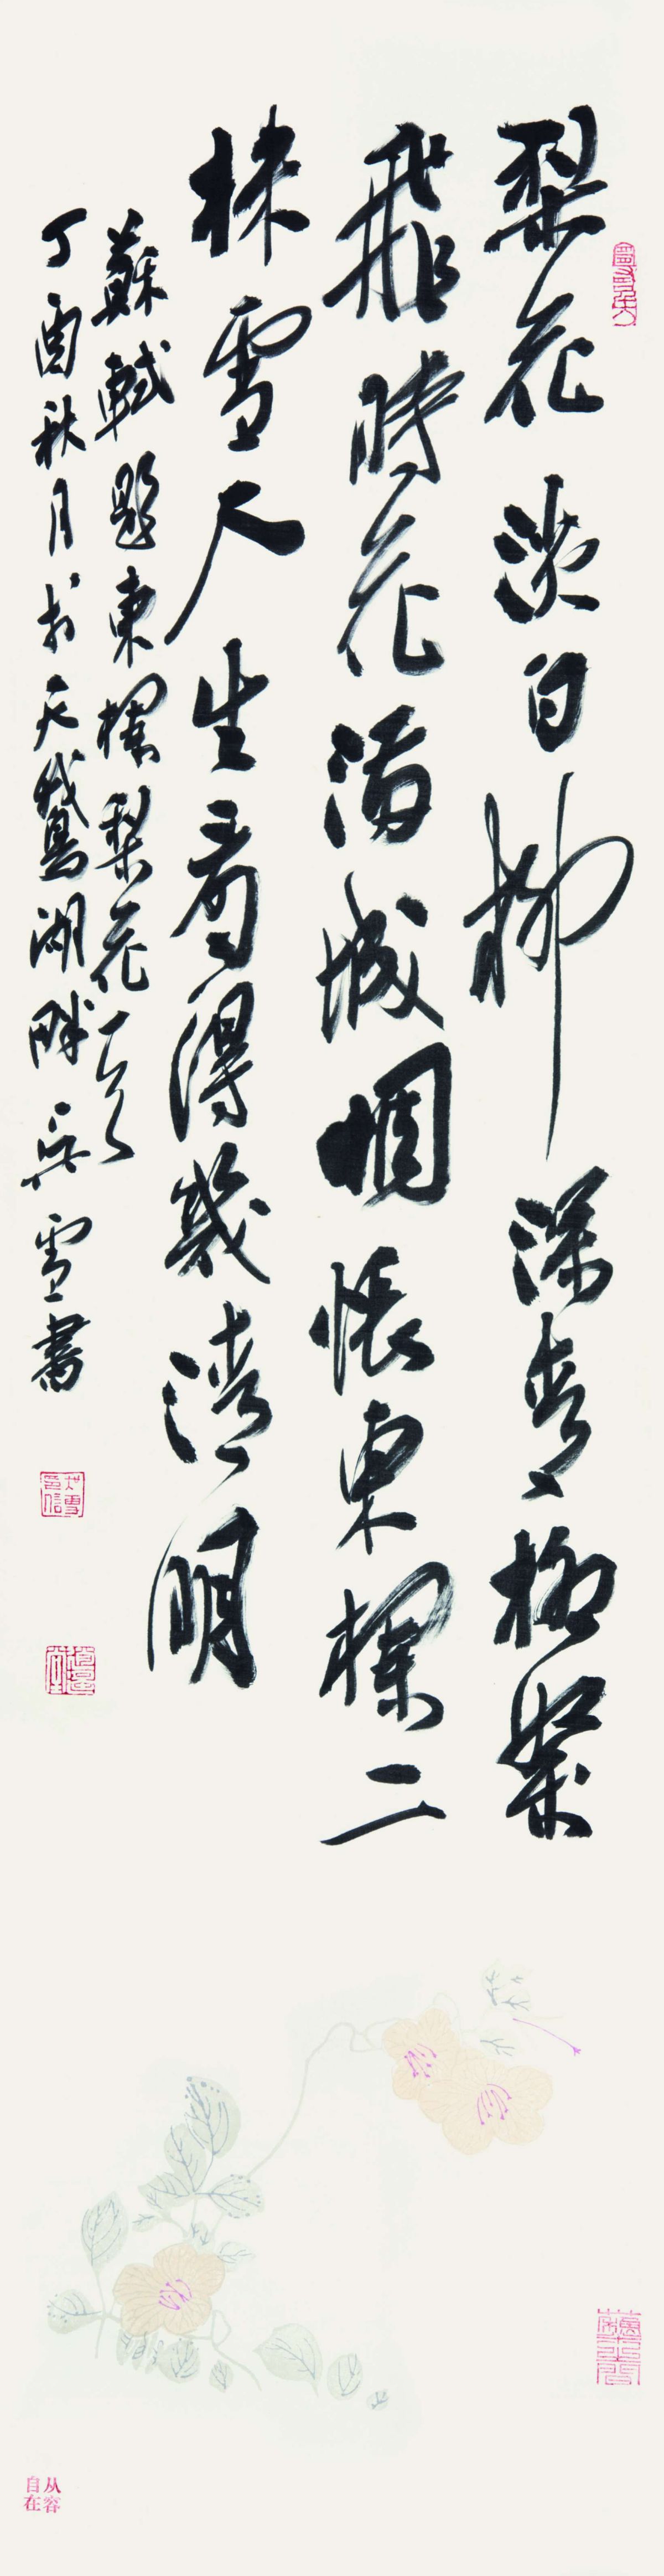 梨花淡白柳深青柳絮
飛時花滿城惆悵東欄二
株雪人生看得幾清明
蘇軾題東欄梨花一首
丁酉秋月於天鵞湖畔雪書
从容
自在